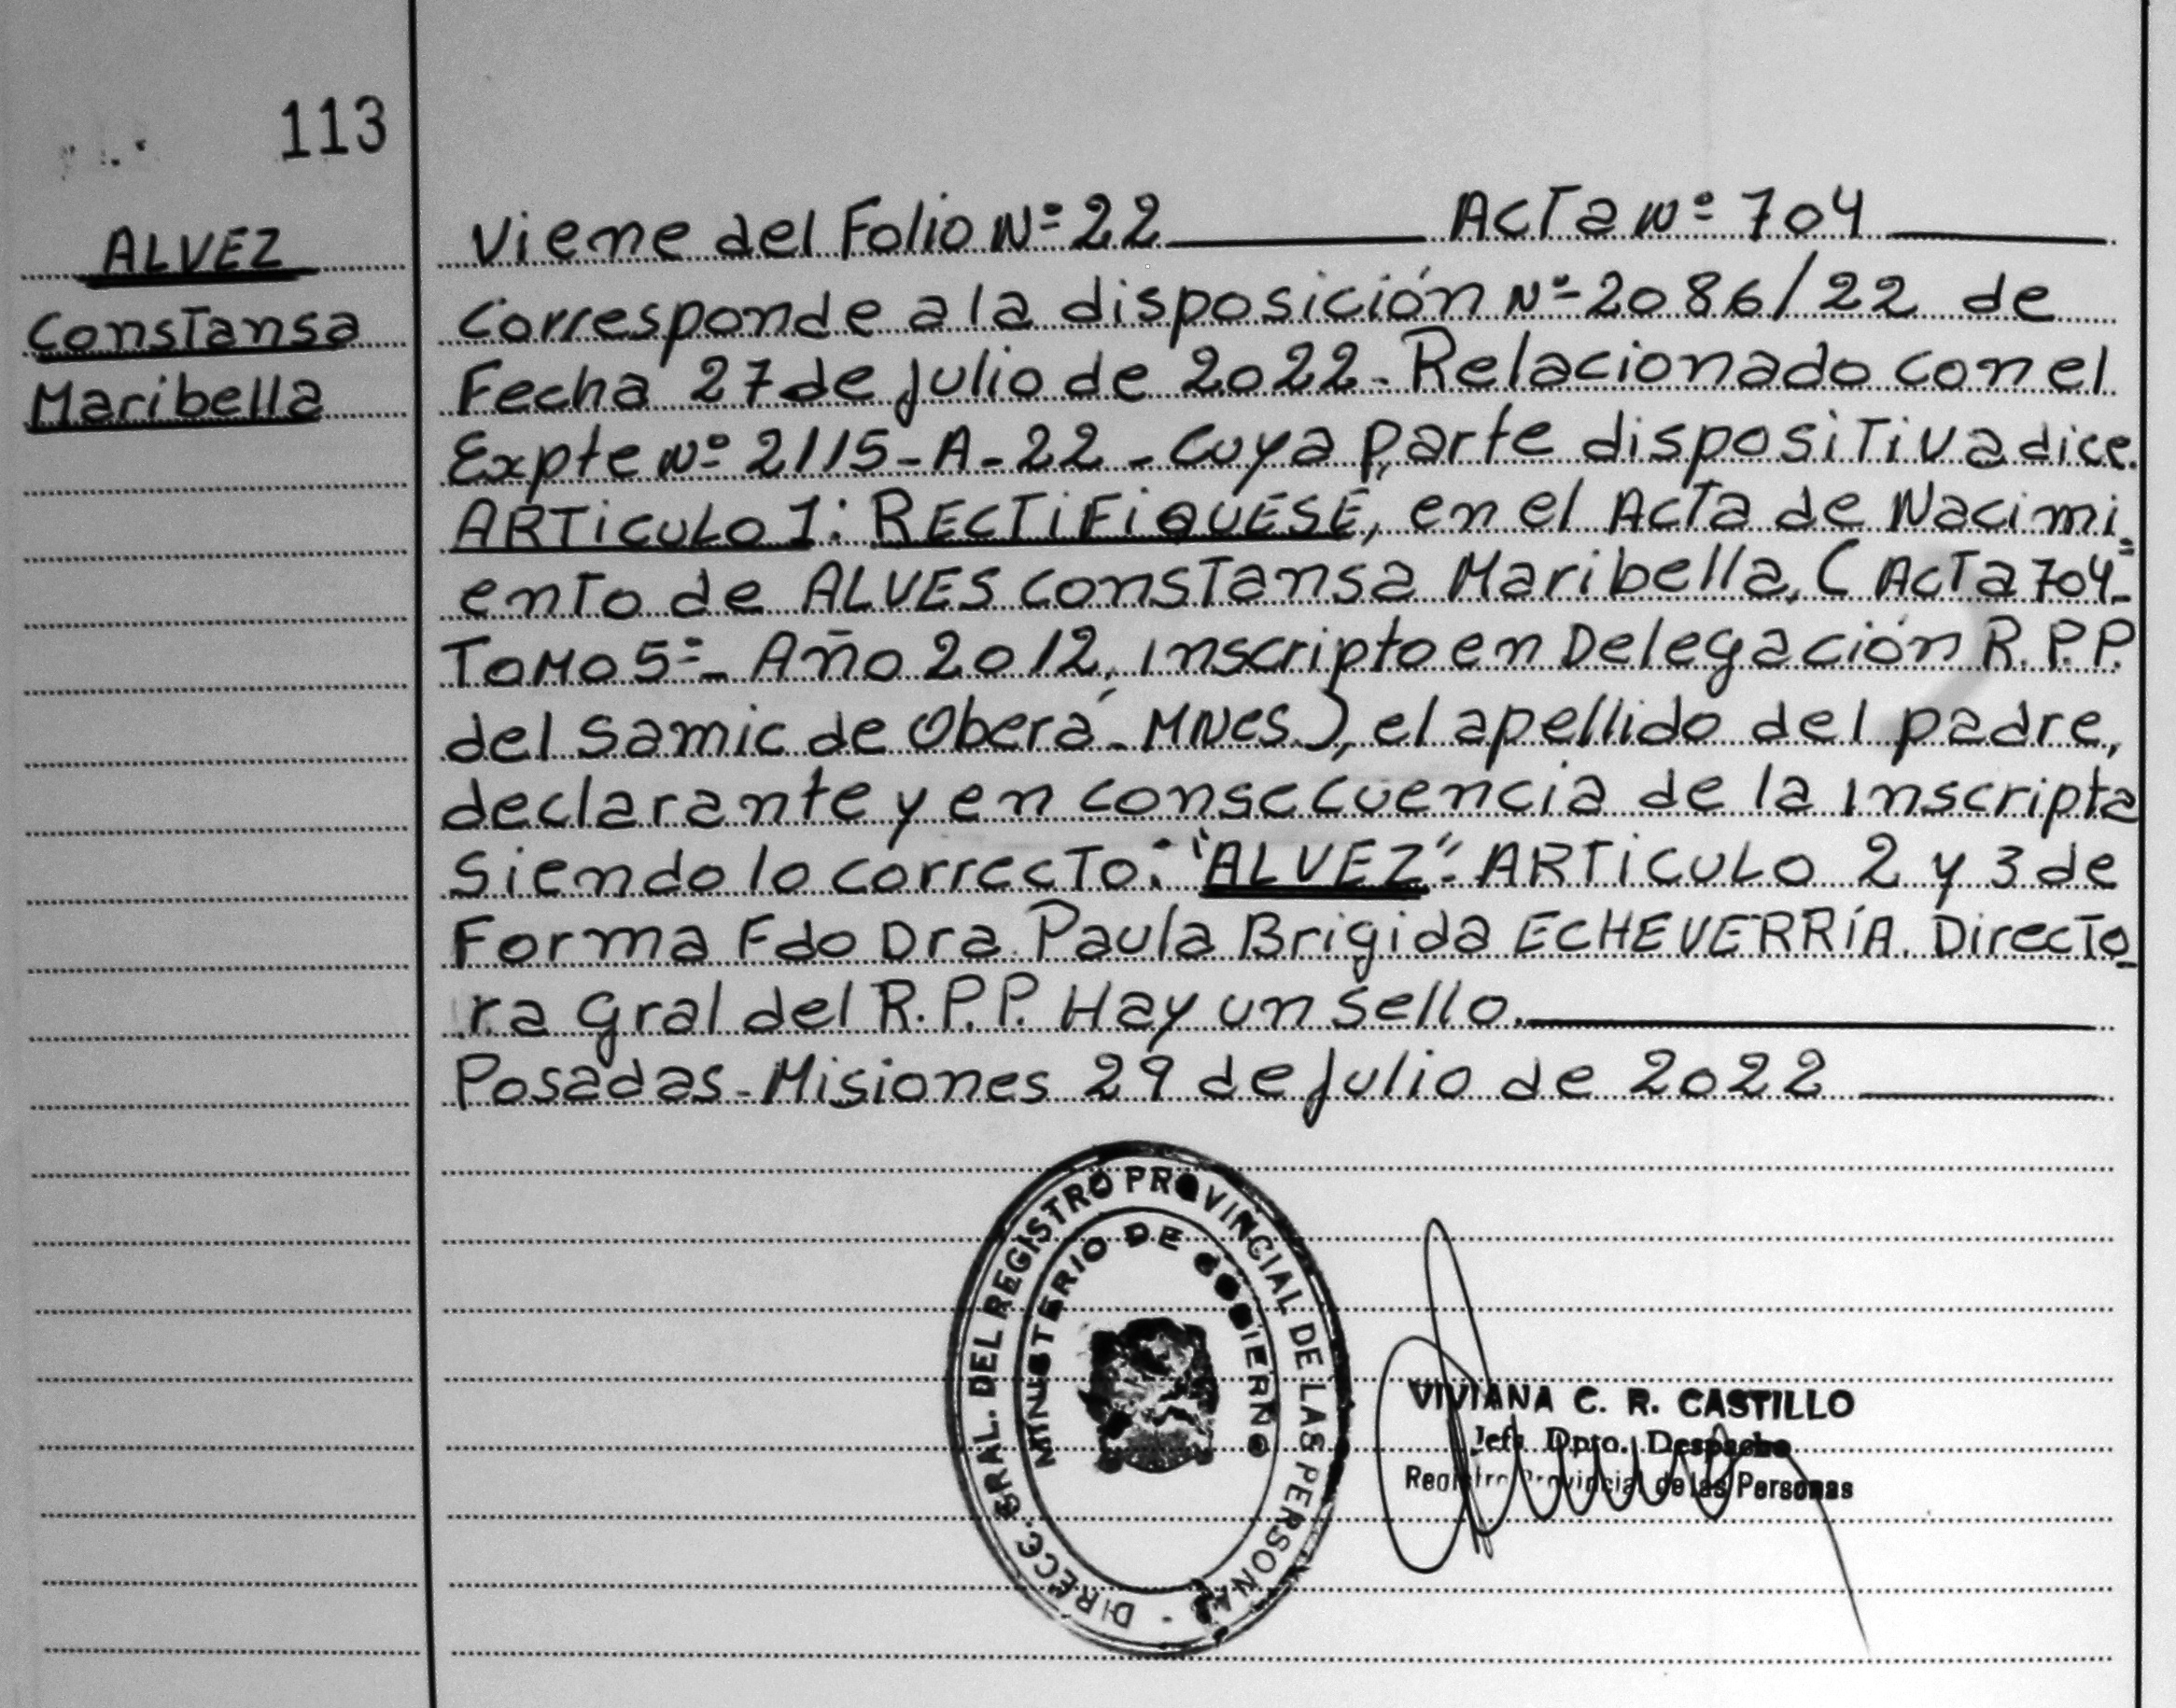 113
ALVEZ
Constansa
Maribella
Viene del Folio Nº 22 ActA Nº 704
Corresponde a la disposición Nº 2086/22 de
Fecha 27 de julio de 2022. Relacionado con el
Expte Nº 2115-A-22 - Cuya parte dispositiva dice.
ARTICULO 1: RECTIFIQUESE, en el Acta de Nacimi=
ento de ALVES Constansa Maribella, (Acta 704-
TOMO 5º- Año 2012, inscripto en Delegación R.P.P.
del Samic de Oberá - MNES.), el apellido del padre,
declarante y en consecuencia de la inscripta
siendo lo correcto: "ALVEZ". ARTICULO 2 y 3 de
Forma Fdo Dra. Paula Brigida ECHEVERRÍA. Directo-
ra Gral del R.P.P. Hay un sello.
Posadas - Misiones 29 de julio de 2022
DIRECC. GRAL. DEL REGISTRO PROVINCIAL DE LAS PERSONAS
MINISTERIO DE GOBIERNO
VIVIANA C. R. CASTILLO
Jefa Dpto. Despacho
Registro Provincial de las Personas